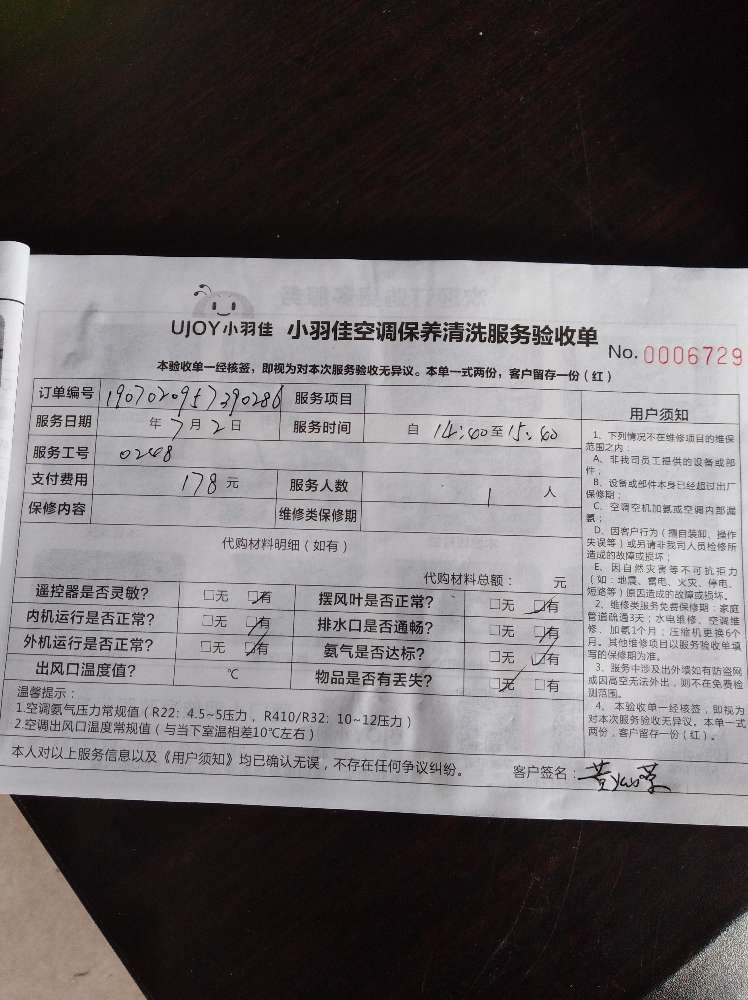 UJOY小羽佳 小羽佳空调保养清洗服务验收单
No. 0006729
本验收单一经核签，即视为对本次服务验收无异议。本单一式两份，客户留存一份（红）
订单编号 1907020957390286 服务项目
服务日期 年7月2日 服务时间 自 14:40至15:40
服务工号 0248
支付费用 178元 服务人数 1 人
保修内容 维修类保修期
代购材料明细（如有）
代购材料总额： 元
遥控器是否灵敏？ □无 □有 摆风叶是否正常？ □无 □有
内机运行是否正常？ □无 □有 排水口是否通畅？ □无 □有
外机运行是否正常？ □无 □有 氨气是否达标？ □无 □有
出风口温度值？ ℃ 物品是否有丢失？ □无 □有
温馨提示：
1.空调氨气压力常规值（R22：4.5~5压力，R410/R32：10~12压力）
2.空调出风口温度常规值（与当下室温相差10℃左右）
本人对以上服务信息以及《用户须知》均已确认无误，不存在任何争议纠纷。
客户签名：
用户须知
1、下列情况不在维修项目的维保
范围之内：
A、非我司员工提供的设备或部
件；
B、设备或部件本身已经超过出厂
保修期；
C、空调空机加氨或空调内部漏
氨；
D、因客户行为（擅自装卸、操作
失误等）或另请非我司人员检修所
造成的故障或损坏；
E、因自然灾害等不可抗拒力
（如：地震、雷电、火灾、停电、
短路等）原因造成的故障或损坏。
2、维修类服务免费保修期：家庭
管道疏通3天；水电维修、空调维
修、加氨1个月；压缩机更换6个
月。其他维修项目以服务验收单填
写的保修期为准。
3、服务中涉及出外墙如有防盗网
或因高空无法外出，则不在免费检
测范围。
4、本验收单一经核签，即视为
对本次服务验收无异议。本单一式
两份，客户留存一份（红）。